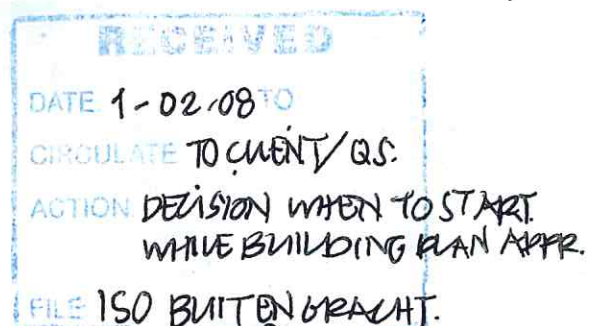 RECEIVED
DATE 1-02-08 TO
CIRCULATE TO CLIENT/QS.
ACTION DECISION WHEN TO START.
WHILE BUILDING PLAN APPR.
FILE 150 BUITENGRACHT.